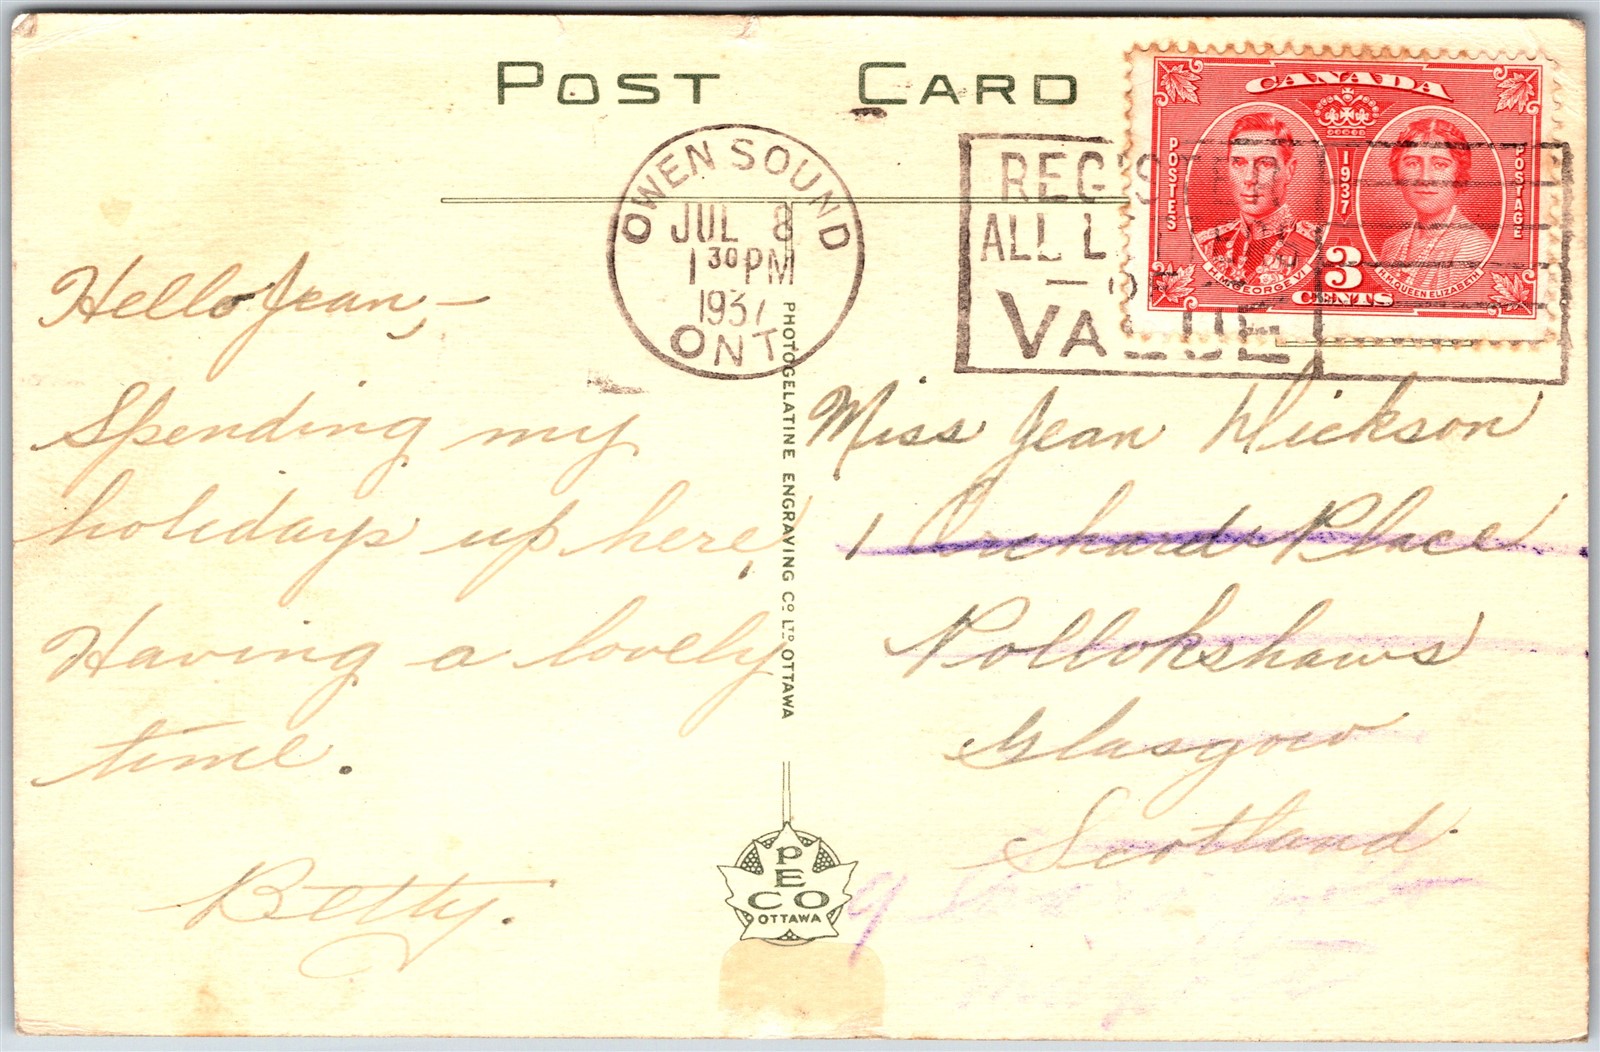 POST CARD
CANADA
POSTES
1937
POSTAGE
H.M. GEORGE VI
H.M. QUEEN ELIZABETH
3
CENTS
OWEN SOUND
JUL 8
1 30 PM
1937
ONT
REGISTER
ALL
VALUE
Hello Jean, –
Spending my
holidays up here,
Having a lovely
time.
Betty.
PHOTOGELATINE ENGRAVING CO. LTD. OTTAWA
PECO
OTTAWA
Miss Jean Dickson
1 Orchard Place
Pollokshaws
Glasgow
Scotland
9